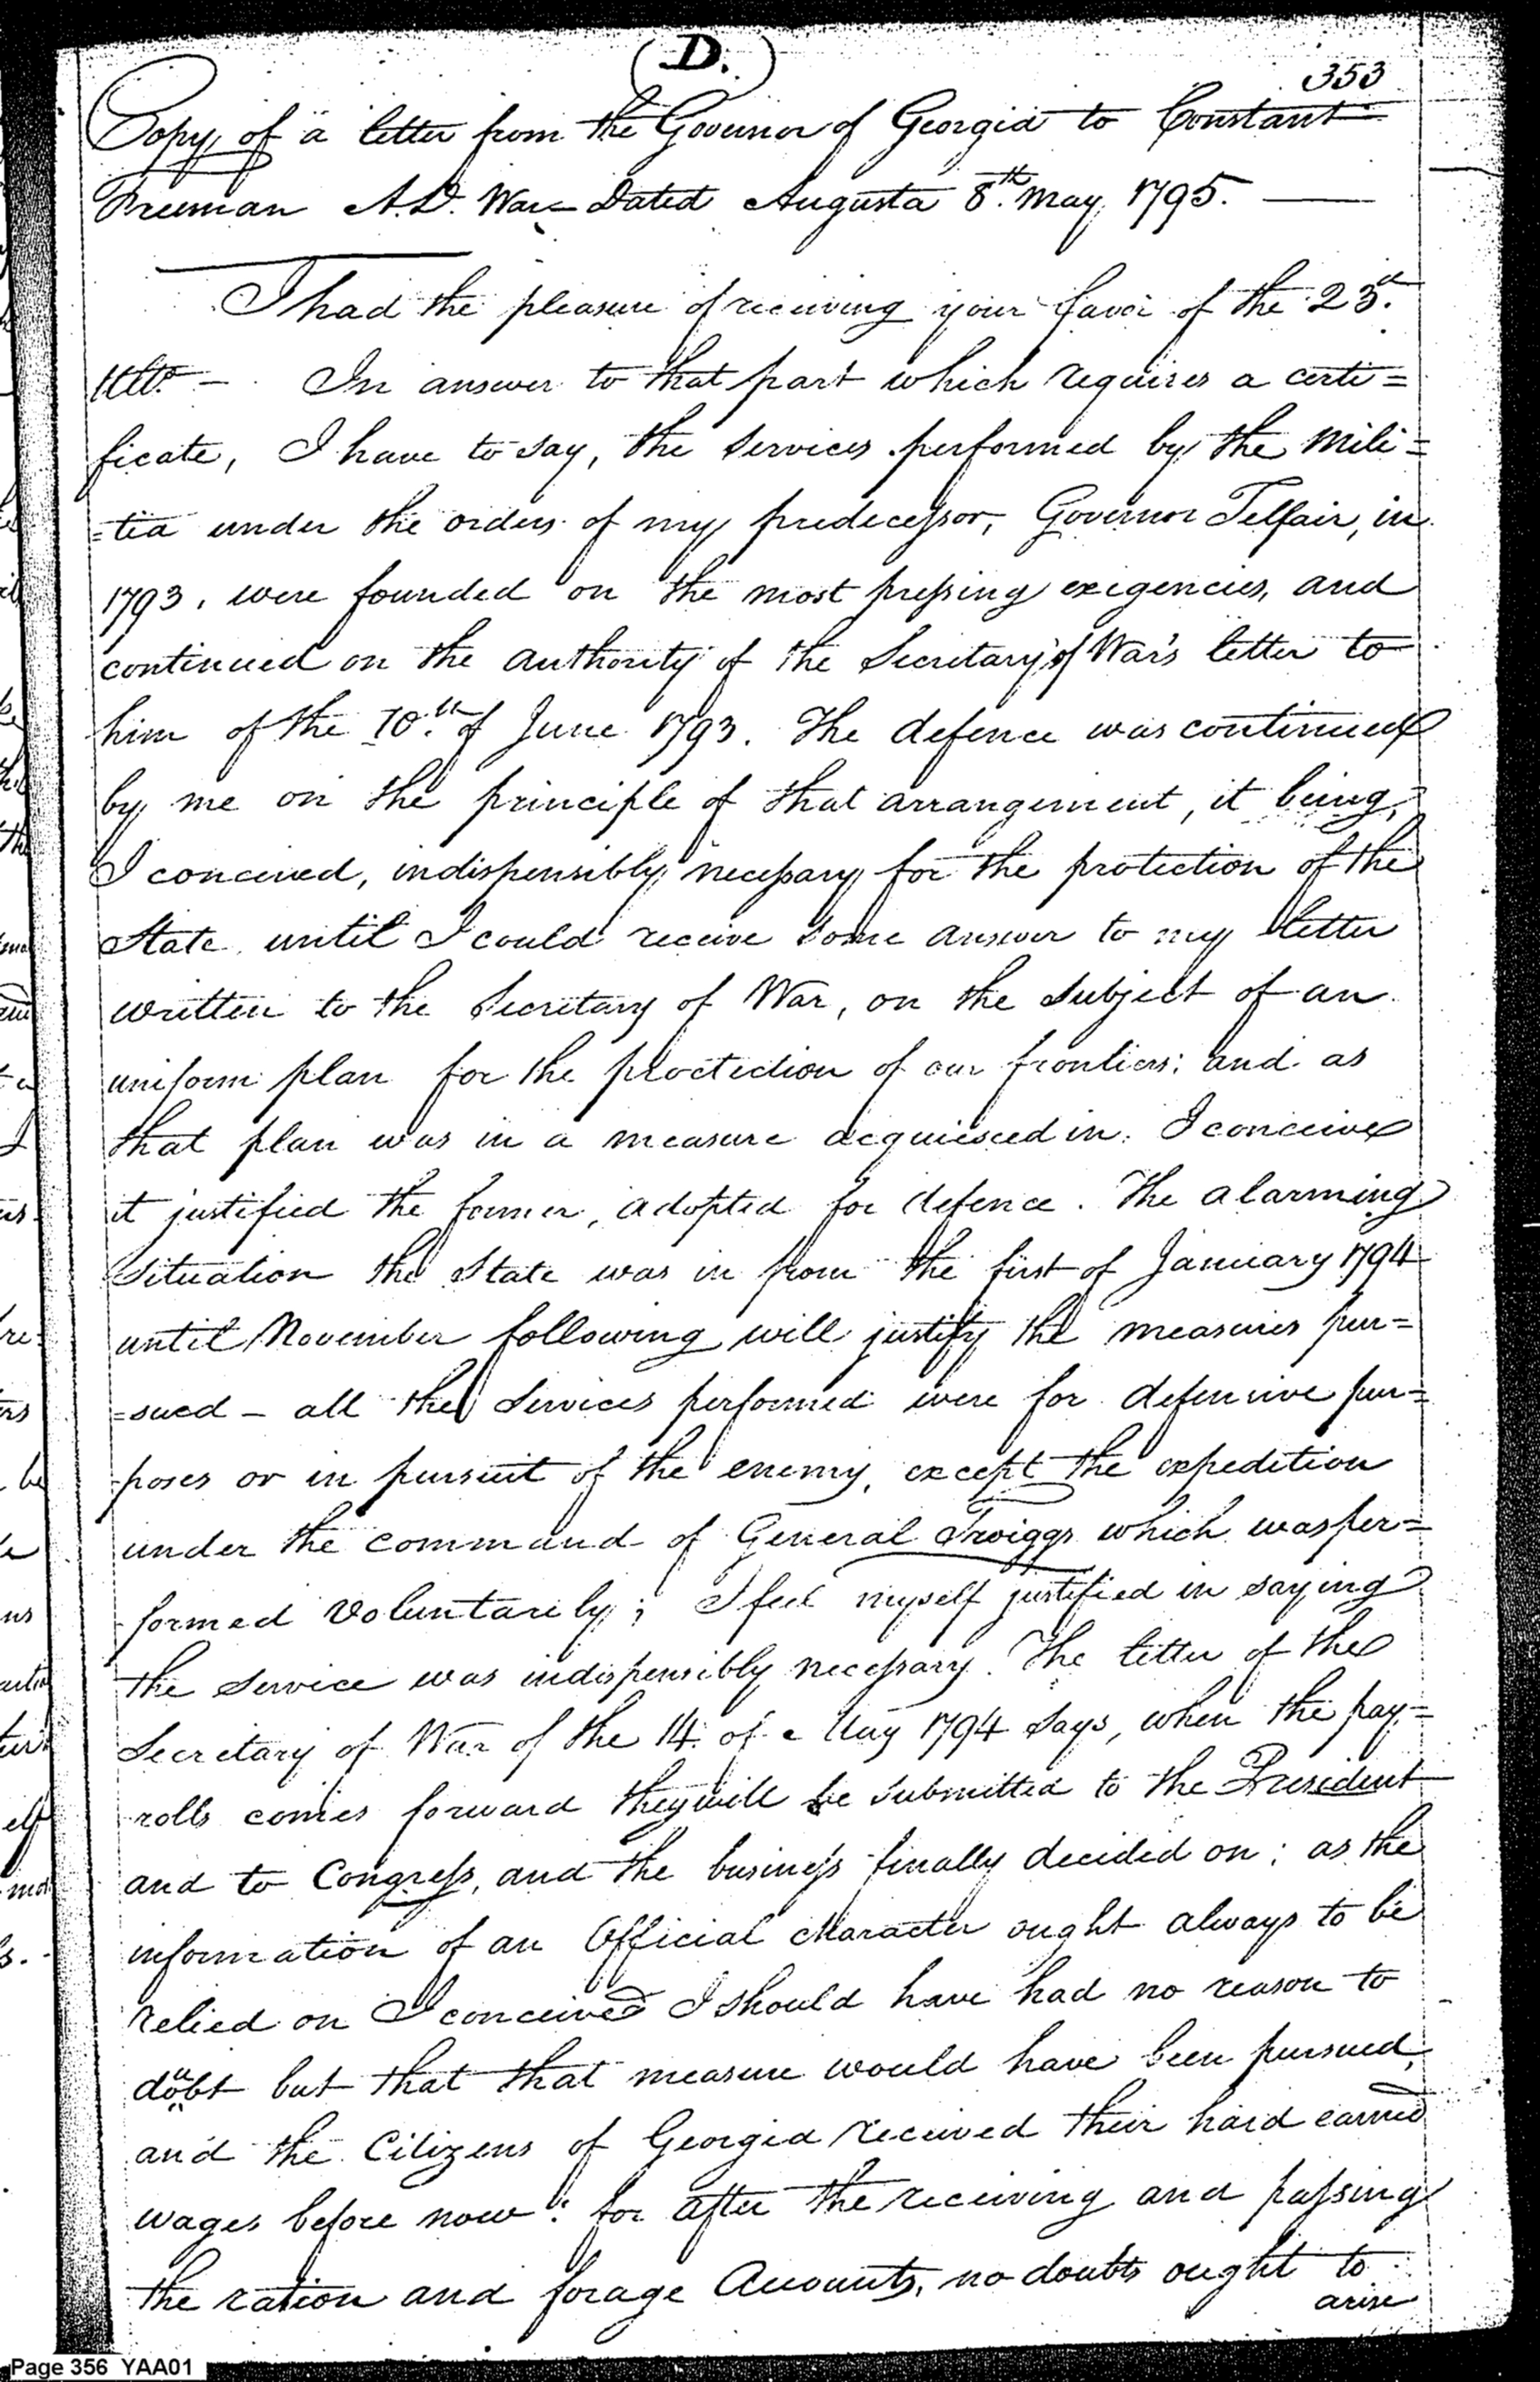 (D.)
353
Copy of a letter from the Governor of Georgia to Constant
Freeman A.D. War – Dated Augusta 8th. May 1795. —
I had the pleasure of receiving your favor of the 23d.
Ulto. – In answer to that part which requires a certi=
ficate, I have to say, the services performed by the mili=
=tia under the orders of my predecessor, Governor Telfair, in
1793, were founded on the most pressing exigencies, and
continued on the authority of the Secretary of War's letter to
him of the 10th. of June 1793. The defence was continued
by me on the principle of that arrangement, it being,
I conceived, indispensibly necessary for the protection of the
State until I could receive some answer to my letter
written to the Secretary of War, on the subject of an
uniform plan for the proctection of our frontiers: and as
that plan was in a measure acquiesced in. I conceive
it justified the former, adopted for defence. The alarming
situation the State was in from the first of January 1794
until November following will justify the measures pur=
=sued – all the services performed were for defensive pur=
-poses or in pursuit of the enemy, except the expedition
under the command of General Twiggs which was per=
-formed voluntarily; I feel myself justified in saying
the service was indispensibly necessary. The letter of the
Secretary of War of the 14. of May 1794 says, when the pay=
-rolls comes forward they will be submitted to the President
and to Congress, and the business finally decided on; as the
information of an Official character ought always to be
relied on I conceived I should have had no reason to
doubt but that that measure would have been pursued,
and the Citizens of Georgia received their hard earned
wages before now: for after the receiving and passing
the ration and forage Accounts, no doubts ought to
arise
Page 356 YAA01